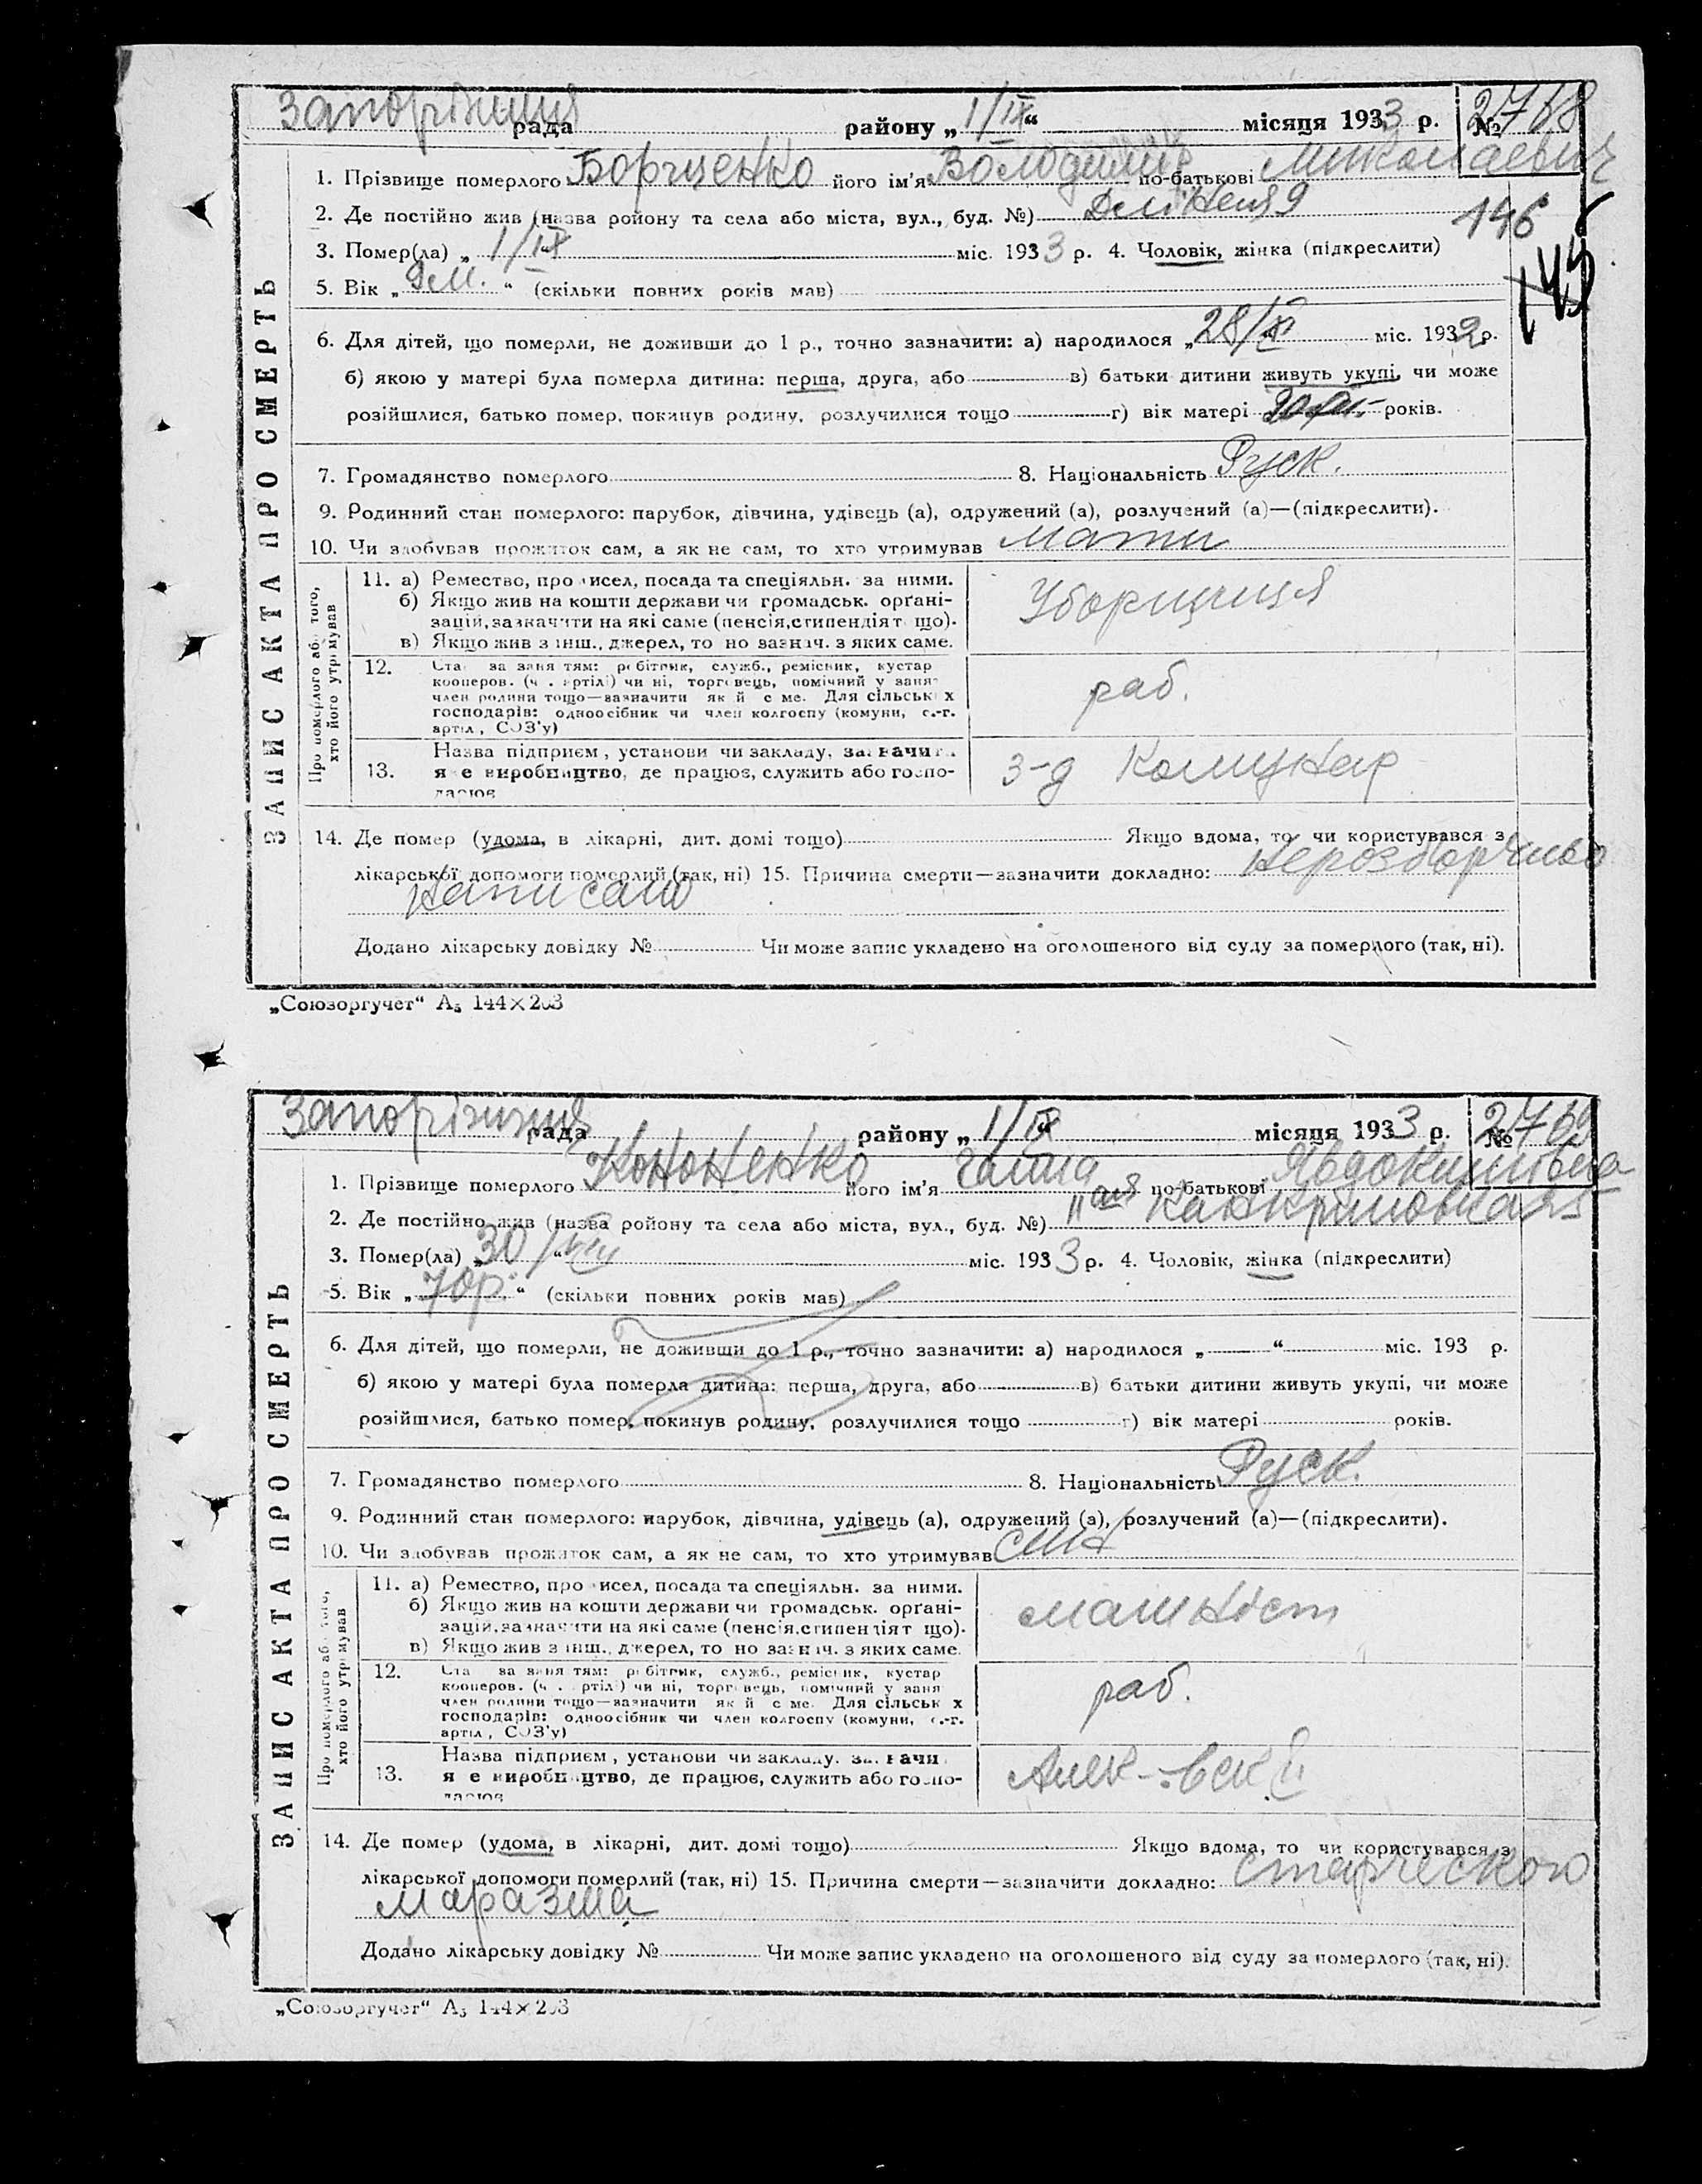 Запоріжжя рада района „1/IX“ місяця 1933 р. № 2768
1. Прізвище померлого Борщенко його ім'я Володимир по-батькові Миколаевич
2. Де постійно жив (назва ройону та села або міста, вул., буд. №) 9
146
3. Помер(ла) „1/IX міс. 1933 р. 4. Чоловік, жінка (підкреслити)
145
5. Вік „9 м.“ (скільки повних років мав)
6. Для дітей, що померли, не доживши до 1 р., точно зазначити: а) народилося „28/XI“ міс. 1932 р.
б) якою у матері була померла дитина: перша, друга, або в) батьки дитини живуть укупі, чи може
розійшлися, батько помер, покинув родину, розлучилися тощо г) вік матері років.
7. Громадянство померлого 8. Національність Руск.
9. Родинний стан померлого: парубок, дівчина, удівець (а), одружений (а), розлучений (а)—(підкреслити).
10. Чи здобував прожиток сам, а як не сам, то хто утримував мати
ЗАПИС АКТА ПРО СМЕРТЬ
Про померлого або того,
хто його утримував
11. а) Ремество, про исел, посада та спеціяльн. за ними.
б) Якщо жив на кошти держави чи громадськ. орґані-
зацій, зазначити на які саме (пенсія, стипендія т що).
в) Якщо жив з інш., джерел, то но зазнач. з яких саме.
Уборщиця
12. Ста за заня тям: робітник, служб., ремісник, кустар
кооперов. (ч . артілі) чи ні, торговець, помічний у заня
член родини тощо—зазначити як й с ме. Для сільськ х
господарів: одноосібник чи член колгоспу (комуни, с.-г.
артіл, СОЗ'у)
раб.
13. Назва підприєм, установи чи закладу, зазначит
я е виробництво, де працює, служить або госпо-
дарює
з-д Комунар
14. Де помер (удома, в лікарні, дит. домі тощо) Якщо вдома, то чи користувався з
лікарської допомоги померлий (так, ні) 15. Причина смерти—зазначити докладно: Нерозборчиво
написано
Додано лікарську довідку № Чи може запис укладено на оголошеного від суду за померлого (так, ні).
„Союзоргучет“ А5 144×203
Запоріжжя рада району „1/IX“ місяця 1933 р. № 2769
1. Прізвище померлого Кононенко його ім'я Галина по-батькові Явдокимівна
2. Де постійно жив (назва ройону та села або міста, вул., буд. №)
3. Помер(ла) „30/VIII“ міс. 1933 р. 4. Чоловік, жінка (підкреслити)
5. Вік „70 р.“ (скільки повних років мав)
6. Для дітей, що померли, не доживши до 1 р., точно зазначити: а) народилося „ “ міс. 193 р.
б) якою у матері була померла дитина: перша, друга, або в) батьки дитини живуть укупі, чи може
розійшлися, батько помер, покинув родину, розлучилися тощо г) вік матері років.
7. Громадянство померлого 8. Національність Руск.
9. Родинний стан померлого: парубок, дівчина, удівець (а), одружений (а), розлучений (а)—(підкреслити).
10. Чи здобував прожиток сам, а як не сам, то хто утримував син
ЗАПИС АКТА ПРО СМЕРТЬ
Про померлого або того,
хто його утримував
11. а) Ремество, про исел, посада та спеціяльн. за ними.
б) Якщо жив на кошти держави чи громадськ. орґані-
зацій, зазначити на які саме (пенсія, стипендія т що).
в) Якщо жив з інш., джерел, то но зазнач. з яких саме.
машніст
12. Ста за заня тям: робітник, служб., ремісник, кустар
кооперов. (ч . артілі) чи ні, торговець, помічний у заня
член родини тощо—зазначити як й с ме. Для сільськ х
господарів: одноосібник чи член колгоспу (комуни, с.-г.
артіл, СОЗ'у)
раб.
13. Назва підприєм, установи чи закладу, зазначи
я е виробництво, де працює, служить або госпо-
дарює
14. Де помер (удома, в лікарні, дит. домі тощо) Якщо вдома, то чи користувався з
лікарської допомоги померлий (так, ні) 15. Причина смерти—зазначити докладно: старческого
маразма
Додано лікарську довідку № Чи може запис укладено на оголошеного від суду за померлого (так, ні).
„Союзоргучет“ А5 144×203